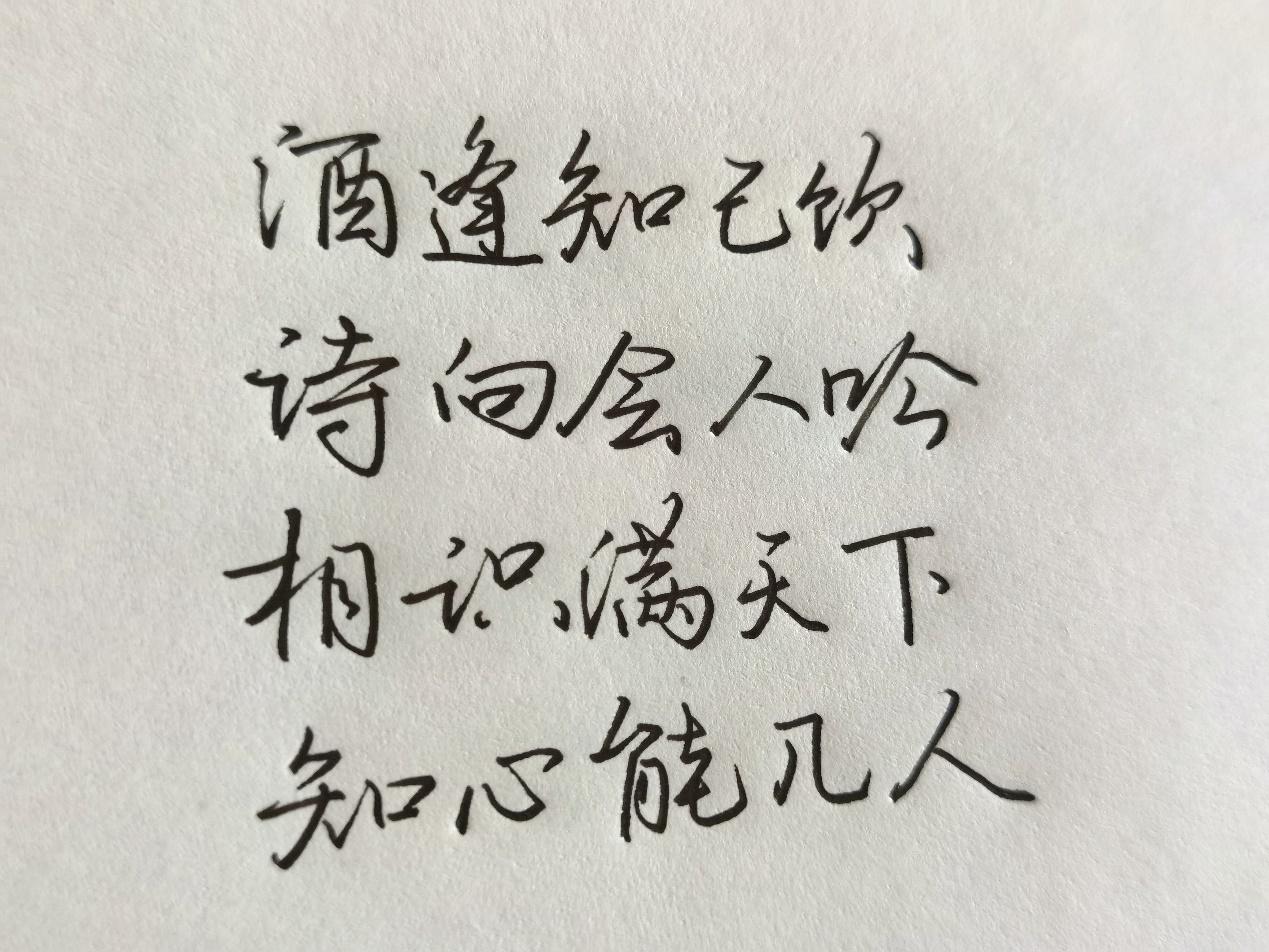 酒逢知己饮
诗向会人吟
相识满天下
知心能几人